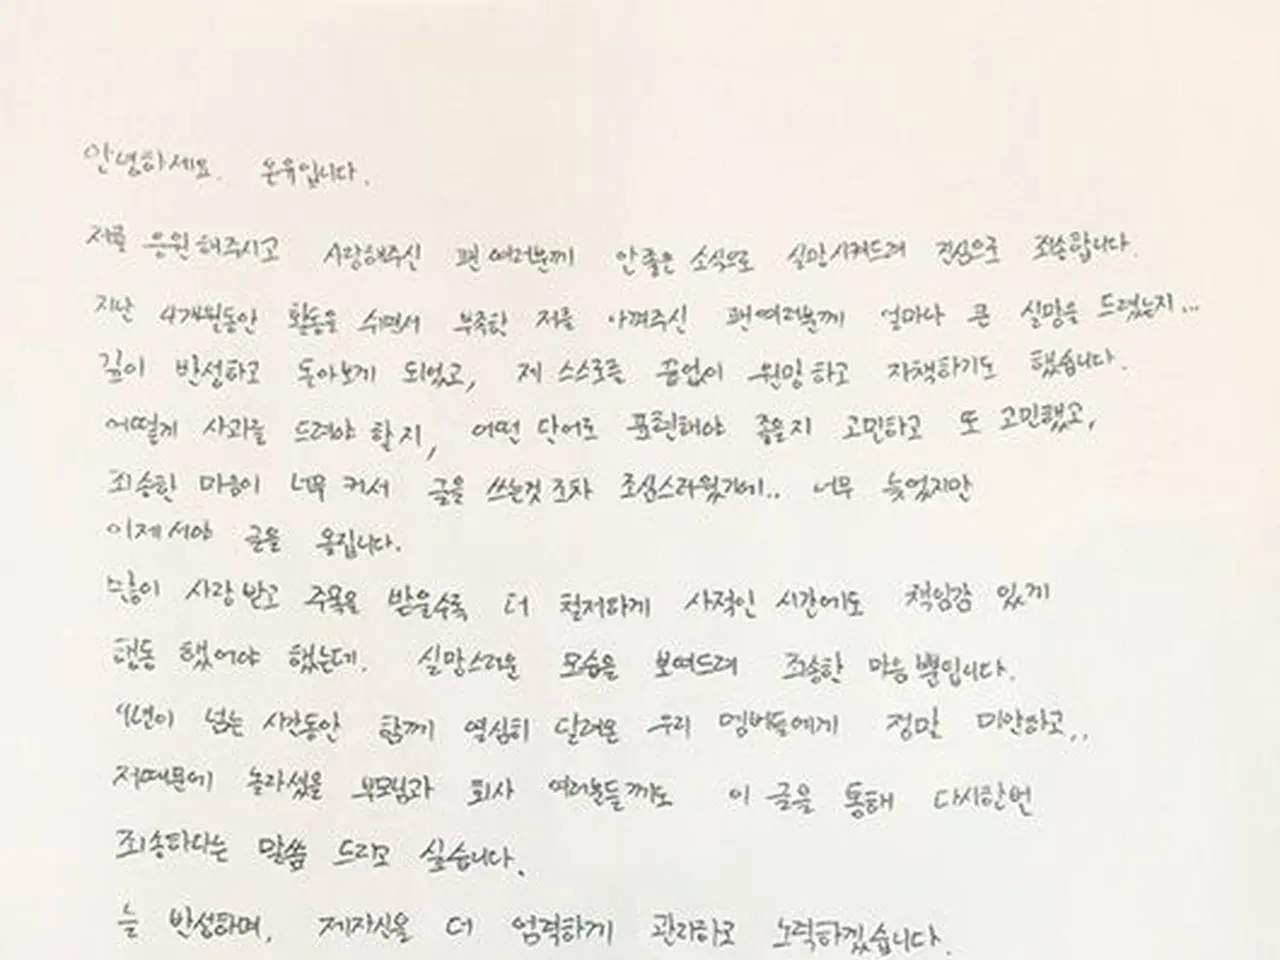 안녕하세요. 온유입니다.
저를 응원해주시고 사랑해주신 팬 여러분께 안좋은 소식으로 실망시켜드려 진심으로 죄송합니다.
지난 4개월동안 활동을 쉬면서 부족한 저를 아껴주신 팬여러분께 얼마나 큰 실망을 드렸는지...
깊이 반성하고 돌아보게 되었고, 제 스스로를 끝없이 원망하고 자책하기도 했습니다.
어떻게 사과를 드려야 할지, 어떤 단어로 표현해야 좋을지 고민하고 또 고민했고,
죄송한 마음이 너무 커서 글을 쓰는것 조차 조심스러웠기에.. 너무 늦었지만
이제서야 글을 올립니다.
많이 사랑받고 주목을 받을수록 더 철저하게 사적인 시간에도 책임감 있게
행동 했어야 했는데. 실망스러운 모습을 보여드려 죄송한 마음뿐입니다.
9년이 넘는 시간동안 함께 열심히 달려온 우리 멤버들에게 정말 미안하고..
저때문에 놀라셨을 부모님과 회사 여러분들께도 이 글을 통해 다시한번
죄송하다는 말씀 드리고 싶습니다.
늘 반성하며, 제자신을 더 엄격하게 관리하고 노력하겠습니다.